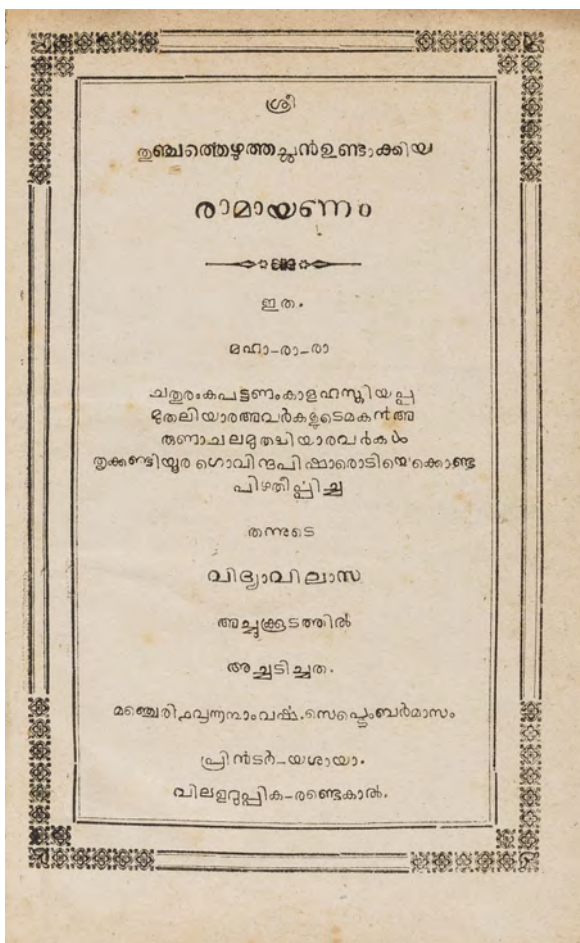 ശ്രീ
തുഞ്ചത്തെഴുത്തച്ശൻഉണ്ടാക്കിയ
രാമായണം
ഇത.
മഹാ-രാ-രാ
ചതുരംകപട്ടണംകാളഹസ്തിയപ്പ
മുതലിയാരഅവർകളുടെമകൻഅ
രുണാചലമുതലിയാരവർകൾ
തൃക്കണ്ടിയൂര ഗൊവിന്ദപിഷാരൊടിയെക്കൊണ്ട
പിഴതീൎപ്പിച്ച
തന്നുടെ
വിദ്യാവിലാസ
അച്ചുക്കൂടത്തിൽ
അച്ചടിച്ചത.
സെപ്തെംബർമാസം
പ്രിൻടർ-യശായാ.
വിലഉറുപ്പിക-രണ്ടെകാൽ.